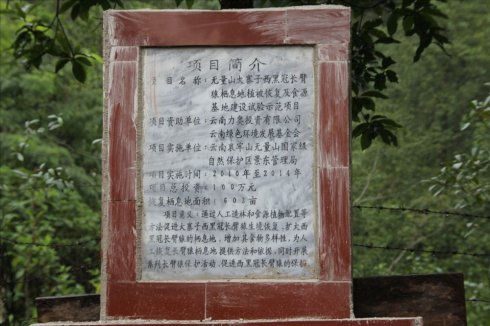 项目简介
项目名称：无量山大寨子西黑冠长臂
猿栖息地植被恢复及食源
基地建设试验示范项目
项目资助单位：云南力奥投资有限公司
云南绿色环境发展基金会
项目实施单位：云南哀牢山无量山国家级
自然保护区景东管理局
项目实施时间：2010年至2014年
项目总投资：100万元
恢复栖息地面积：603亩
项目意义：通过人工造林和食源植物配置等
方法促进大寨子西黑冠长臂猿生境恢复，扩大西
黑冠长臂猿的栖息地，增加其食物多样性，为人
工恢复长臂猿栖息地提供方法和依据，同时开展
系列长臂猿保护活动，促进西黑冠长臂猿的保护